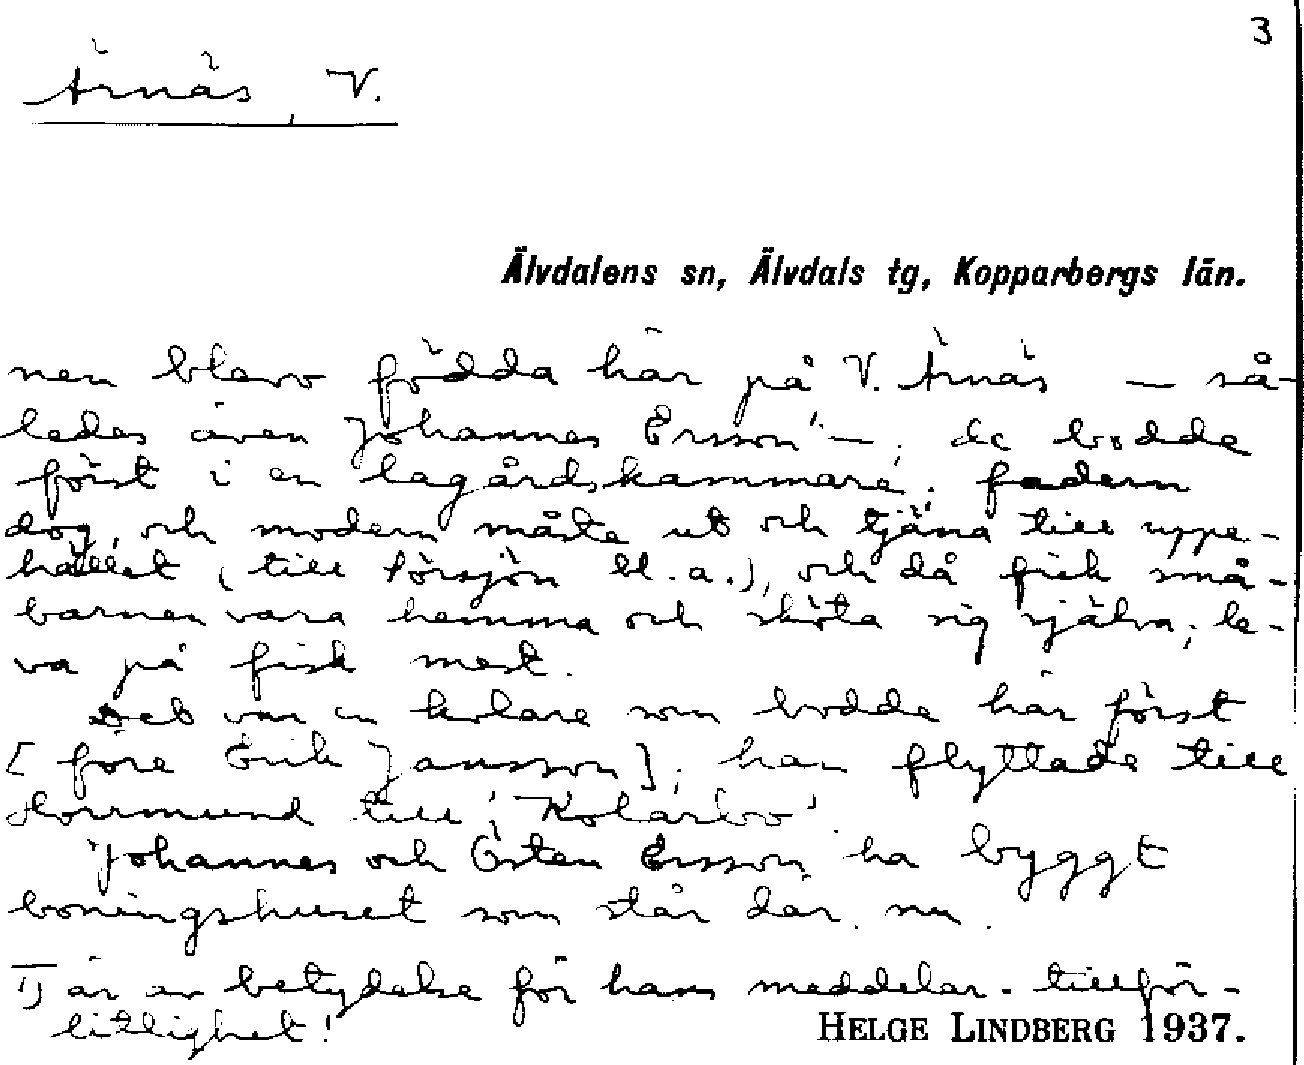 3
Ärnäs, V.
Älvdalens sn, Älvdals tg, Kopparbergs län.
nen blevo födda här på V. Ärnäs — så-
ledes även Johannes Ersson ¹⁾ —; de bodde
först i en lagårdskammare; fadern
dog, och modern måste ut och tjäna till uppe-
hället (till Sörsjön bl.a.), och då fick små-
barnen vara hemma och sköta sig själva, le-
va på fisk mest.
Det var en kolare som bodde här först
[före Erik Jansson]; han flyttade till
Horrmund till 'Kolarbo'.
Johannes och Östen Ersson ha byggt
boningshuset som står där nu.
1) är av betydelse för hans meddelar-tillför-
litlighet!
HELGE LINDBERG 1937.